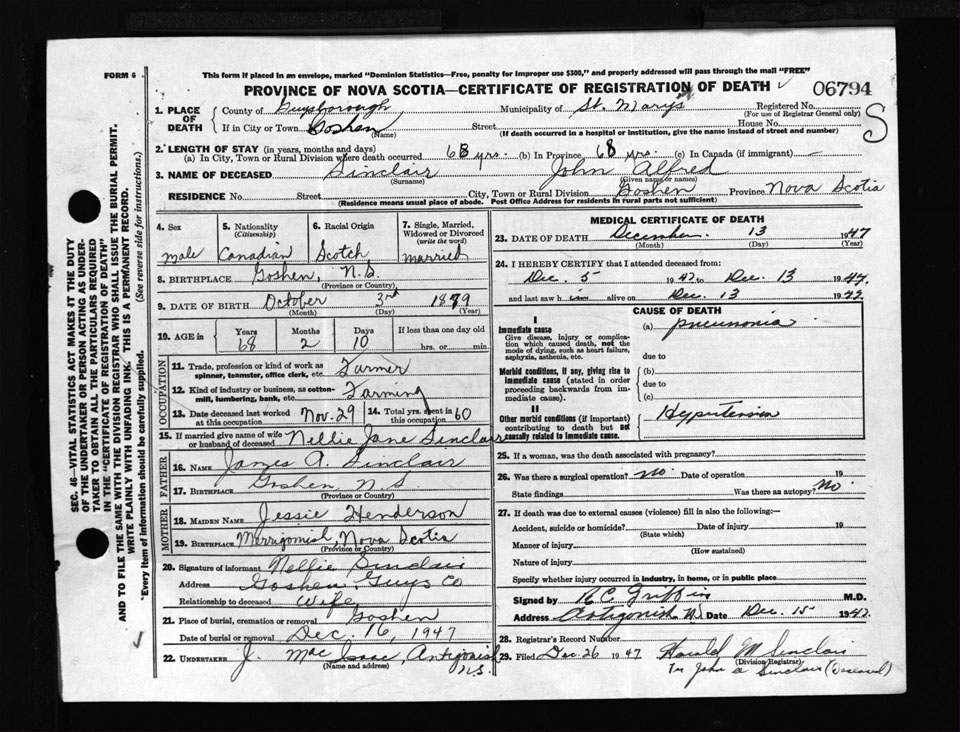 FORM 6
This form if placed in an envelope, marked "Dominion Statistics—Free, penalty for improper use $300," and properly addressed will pass through the mail "FREE"
PROVINCE OF NOVA SCOTIA—CERTIFICATE OF REGISTRATION OF DEATH
06794
S
1. PLACE OF DEATH
County of Guysborough Municipality of St. Mary's Registered No.
(For use of Registrar General only)
If in City or Town Goshen Street House No.
(Name) (If death occurred in a hospital or institution, give the name instead of street and number)
2. LENGTH OF STAY (in years, months and days)
(a) In City, Town or Rural Division where death occurred 68 yrs. (b) In Province 68 yrs. (c) In Canada (if immigrant) —
3. NAME OF DECEASED Sinclair John Alfred
(Surname) (Given name or names)
RESIDENCE No. Street City, Town or Rural Division Goshen Province Nova Scotia
(Residence means usual place of abode. Post Office Address for residents in rural parts not sufficient)
4. Sex male
5. Nationality (Citizenship) Canadian
6. Racial Origin Scotch
7. Single, Married, Widowed or Divorced (write the word) married
8. BIRTHPLACE Goshen, N.S.
(Province or Country)
9. DATE OF BIRTH October 3rd 1879
(Month) (Day) (Year)
10. AGE in Years 68 Months 2 Days 10 If less than one day old
hrs. or min.
OCCUPATION
11. Trade, profession or kind of work as spinner, teamster, office clerk, etc. Farmer
12. Kind of industry or business, as cotton-mill, lumbering, bank, etc. Farming
13. Date deceased last worked at this occupation Nov. 29
14. Total yrs. spent in this occupation 60
15. If married give name of wife or husband of deceased Nellie Jane Sinclair
FATHER
16. NAME James A. Sinclair
17. BIRTHPLACE Goshen N.S
(Province or Country)
MOTHER
18. MAIDEN NAME Jessie Henderson
19. BIRTHPLACE Merrigomish, Nova Scotia
(Province or Country)
20. Signature of informant Nellie Sinclair
Address Goshen Guys Co
Relationship to deceased Wife
21. Place of burial, cremation or removal Goshen
Date of burial or removal Dec. 16, 1947
22. UNDERTAKER J. MacIsaac, Antigonish N.S.
(Name and address)
MEDICAL CERTIFICATE OF DEATH
23. DATE OF DEATH December 13 1947
(Month) (Day) (Year)
24. I HEREBY CERTIFY that I attended deceased from:
Dec. 5 1947 to Dec. 13 1947.
and last saw him alive on Dec. 13 1947.
CAUSE OF DEATH
I
Immediate cause
Give disease, injury or complication which caused death, not the mode of dying, such as heart failure, asphyxia, asthenia, etc.
(a) pneumonia
due to
Morbid conditions, if any, giving rise to immediate cause (stated in order proceeding backwards from immediate cause).
(b)
due to
(c)
II
Other morbid conditions (if important) contributing to death but not causally related to immediate cause.
Hypertension
25. If a woman, was the death associated with pregnancy?
26. Was there a surgical operation? no. Date of operation 19
State findings Was there an autopsy? No.
27. If death was due to external causes (violence) fill in also the following:—
Accident, suicide or homicide? Date of injury 19
(State which)
Manner of injury
(How sustained)
Nature of injury
Specify whether injury occurred in industry, in home, or in public place
Signed by R C Griffin M.D.
Address Antigonish N.S. Date Dec. 15 1947.
28. Registrar's Record Number
29. Filed Dec. 26 1947 Harold M Sinclair
(Division Registrar)
For John A Sinclair (Deceased)
SEC. 46—VITAL STATISTICS ACT MAKES IT THE DUTY
OF THE UNDERTAKER OR PERSON ACTING AS UNDER-
TAKER TO OBTAIN ALL THE PARTICULARS REQUIRED
IN THE "CERTIFICATE OF REGISTRATION OF DEATH"
AND TO FILE THE SAME WITH THE DIVISION REGISTRAR WHO SHALL ISSUE THE BURIAL PERMIT.
WRITE PLAINLY WITH UNFADING INK. THIS IS A PERMANENT RECORD.
"Every item of information should be carefully supplied. (See reverse side for instructions.)